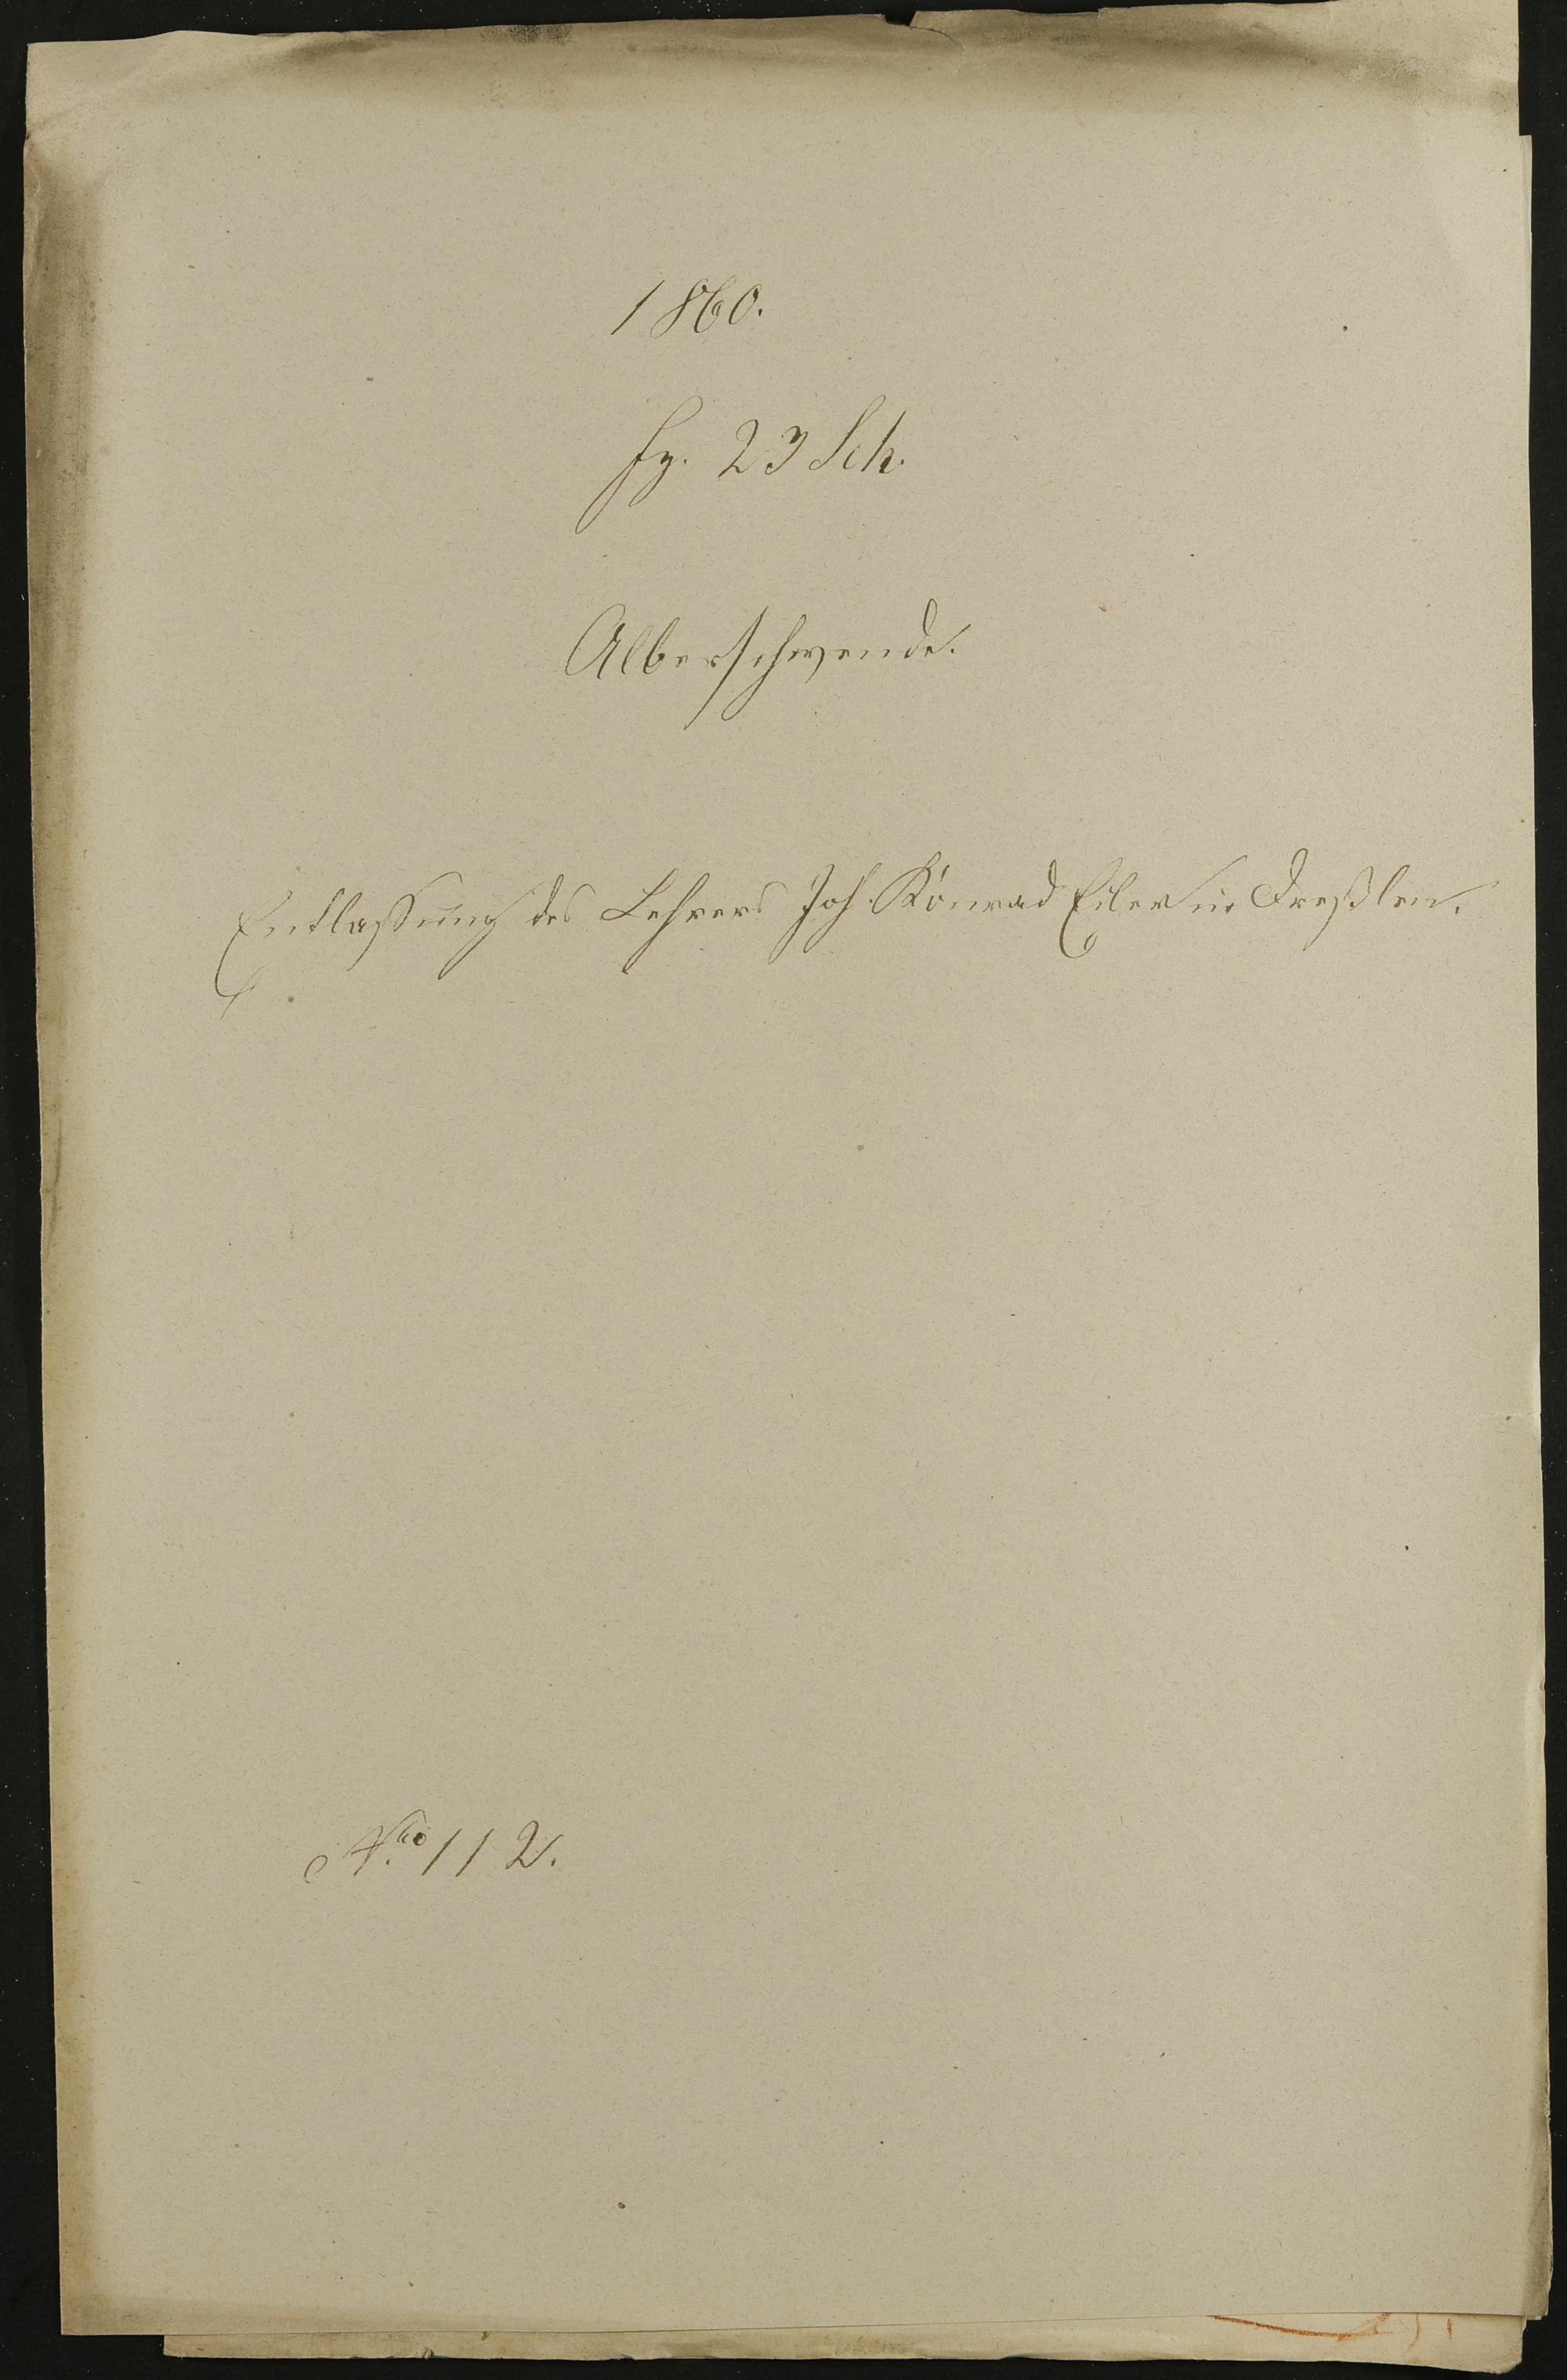 1860.
Fz. 23 Sch.
Alberschwende.
Entlassung des Lehrers Joh. Konrad Eiler in Dreßlen.
No 112.